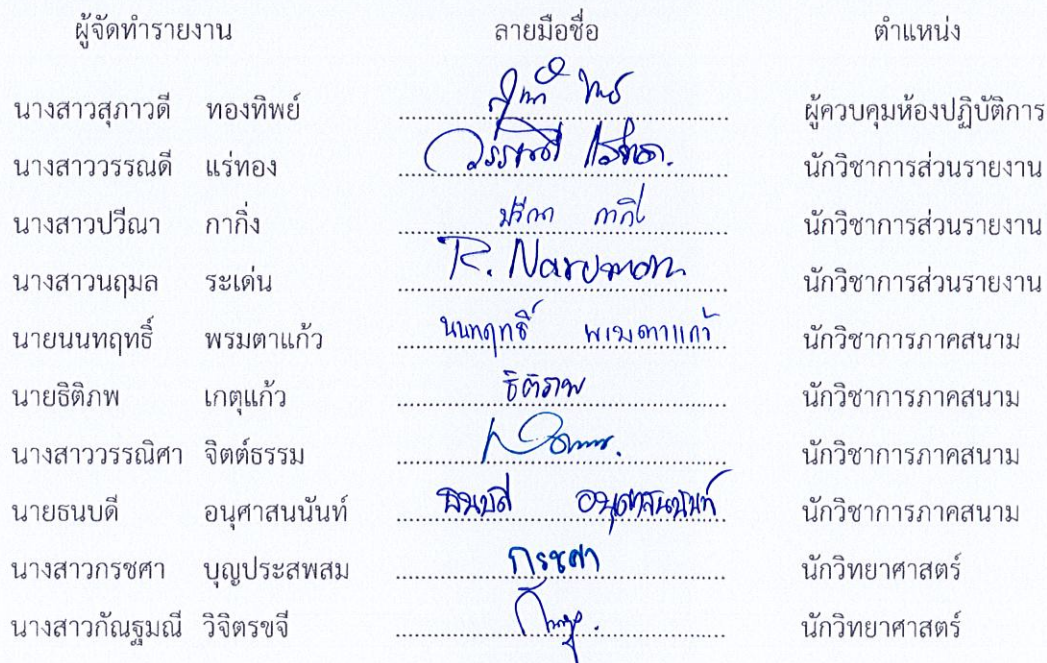 ผู้จัดทำรายงาน ลายมือชื่อ ตำแหน่ง
นางสาวสุภาวดี ทองทิพย์ ผู้ควบคุมห้องปฏิบัติการ
นางสาววรรณดี แร่ทอง วรรณดี แร่ทอง. นักวิชาการส่วนรายงาน
นางสาวปวีณา กากิ่ง ปวีณา กากิ่ง นักวิชาการส่วนรายงาน
นางสาวนฤมล ระเด่น R. Naruemon นักวิชาการส่วนรายงาน
นายนนทฤทธิ์ พรมตาแก้ว นนทฤทธิ์ พรมตาแก้ว นักวิชาการภาคสนาม
นายธิติภพ เกตุแก้ว ธิติภพ นักวิชาการภาคสนาม
นางสาววรรณิศา จิตต์ธรรม นักวิชาการภาคสนาม
นายธนบดี อนุศาสนนันท์ ธนบดี อนุศาสนนันท์ นักวิชาการภาคสนาม
นางสาวกรชศา บุญประสพสม กรชศา นักวิทยาศาสตร์
นางสาวกัณฐมณี วิจิตรขจี นักวิทยาศาสตร์